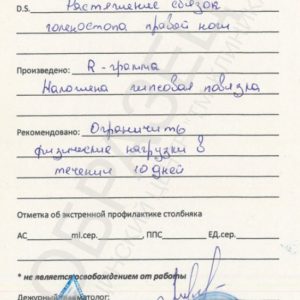 D.S. Растяжение связок
голеностопа правой ноги
Произведено: R - грамма
Наложена гипсовая повязка
Рекомендовано: Ограничить
физические нагрузки в
течении 10 дней
Отметка об экстренной профилактике столбняка
АС ml.сер. , ППС ЕД.сер.
* не является освобождением от работы
Дежурный травматолог:
ОБРАЗЕЦ